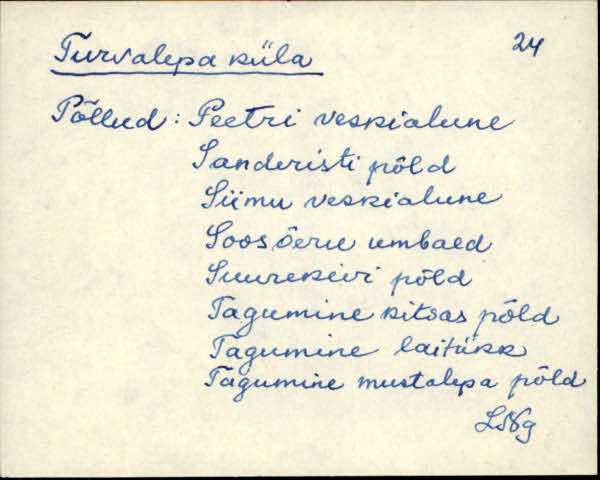 Turvalepa küla
24
Põllud: Peetri veskialune
Sanderisti põld
Siimu veskialune
Soosõeru umbaed
Suurekivi põld
Tagumine kitsas põld
Tagumine laitükk
Tagumine mustalepa põld